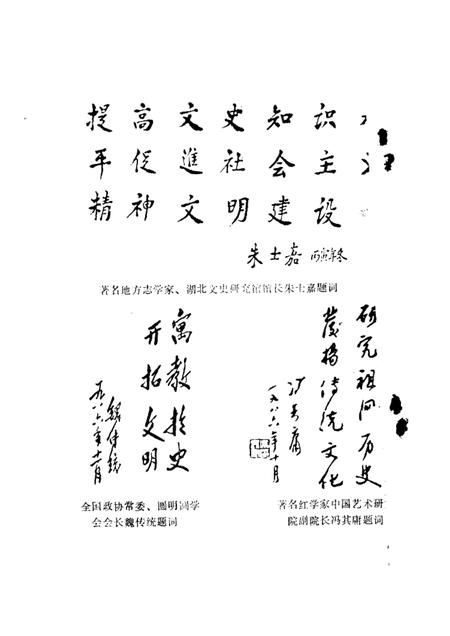 提高文史知识
平促進社会主
精神文明建设
朱士嘉 丙寅年冬
著名地方志学家、湖北文史研究馆馆长朱士嘉题词
寓教於史
开拓文明
魏传统
一九八六年十一月
全国政协常委、圆明园学
会会长魏传统题词
研究祖国历史
发扬传统文化
冯其庸
一九八六年十月
著名红学家中国艺术研
院副院长冯其庸题词